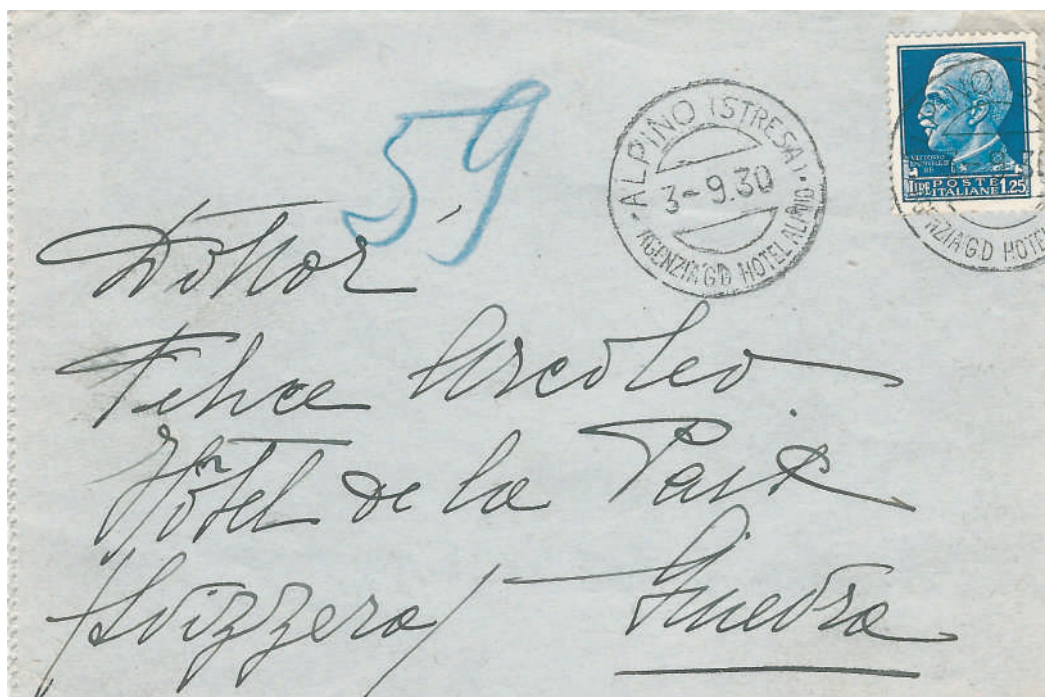 59
ALPINO (STRESA)
3-9.30
AGENZIA GD HOTEL ALPINO
VITTORIO EMANUELE III RE
LIRE POSTE ITALIANE 1.25
NZIA GD HOTEL
Dottor
Felice Arcoleo
Hôtel de la Paix
Svizzera / Ginevra